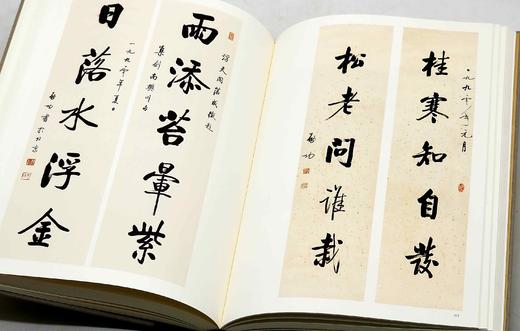 一九九〇年元月
桂寒知自發
松老問誰栽
啟功
雨添苔暈紫
日落水浮金
一九九〇年夏
啟功書於北京